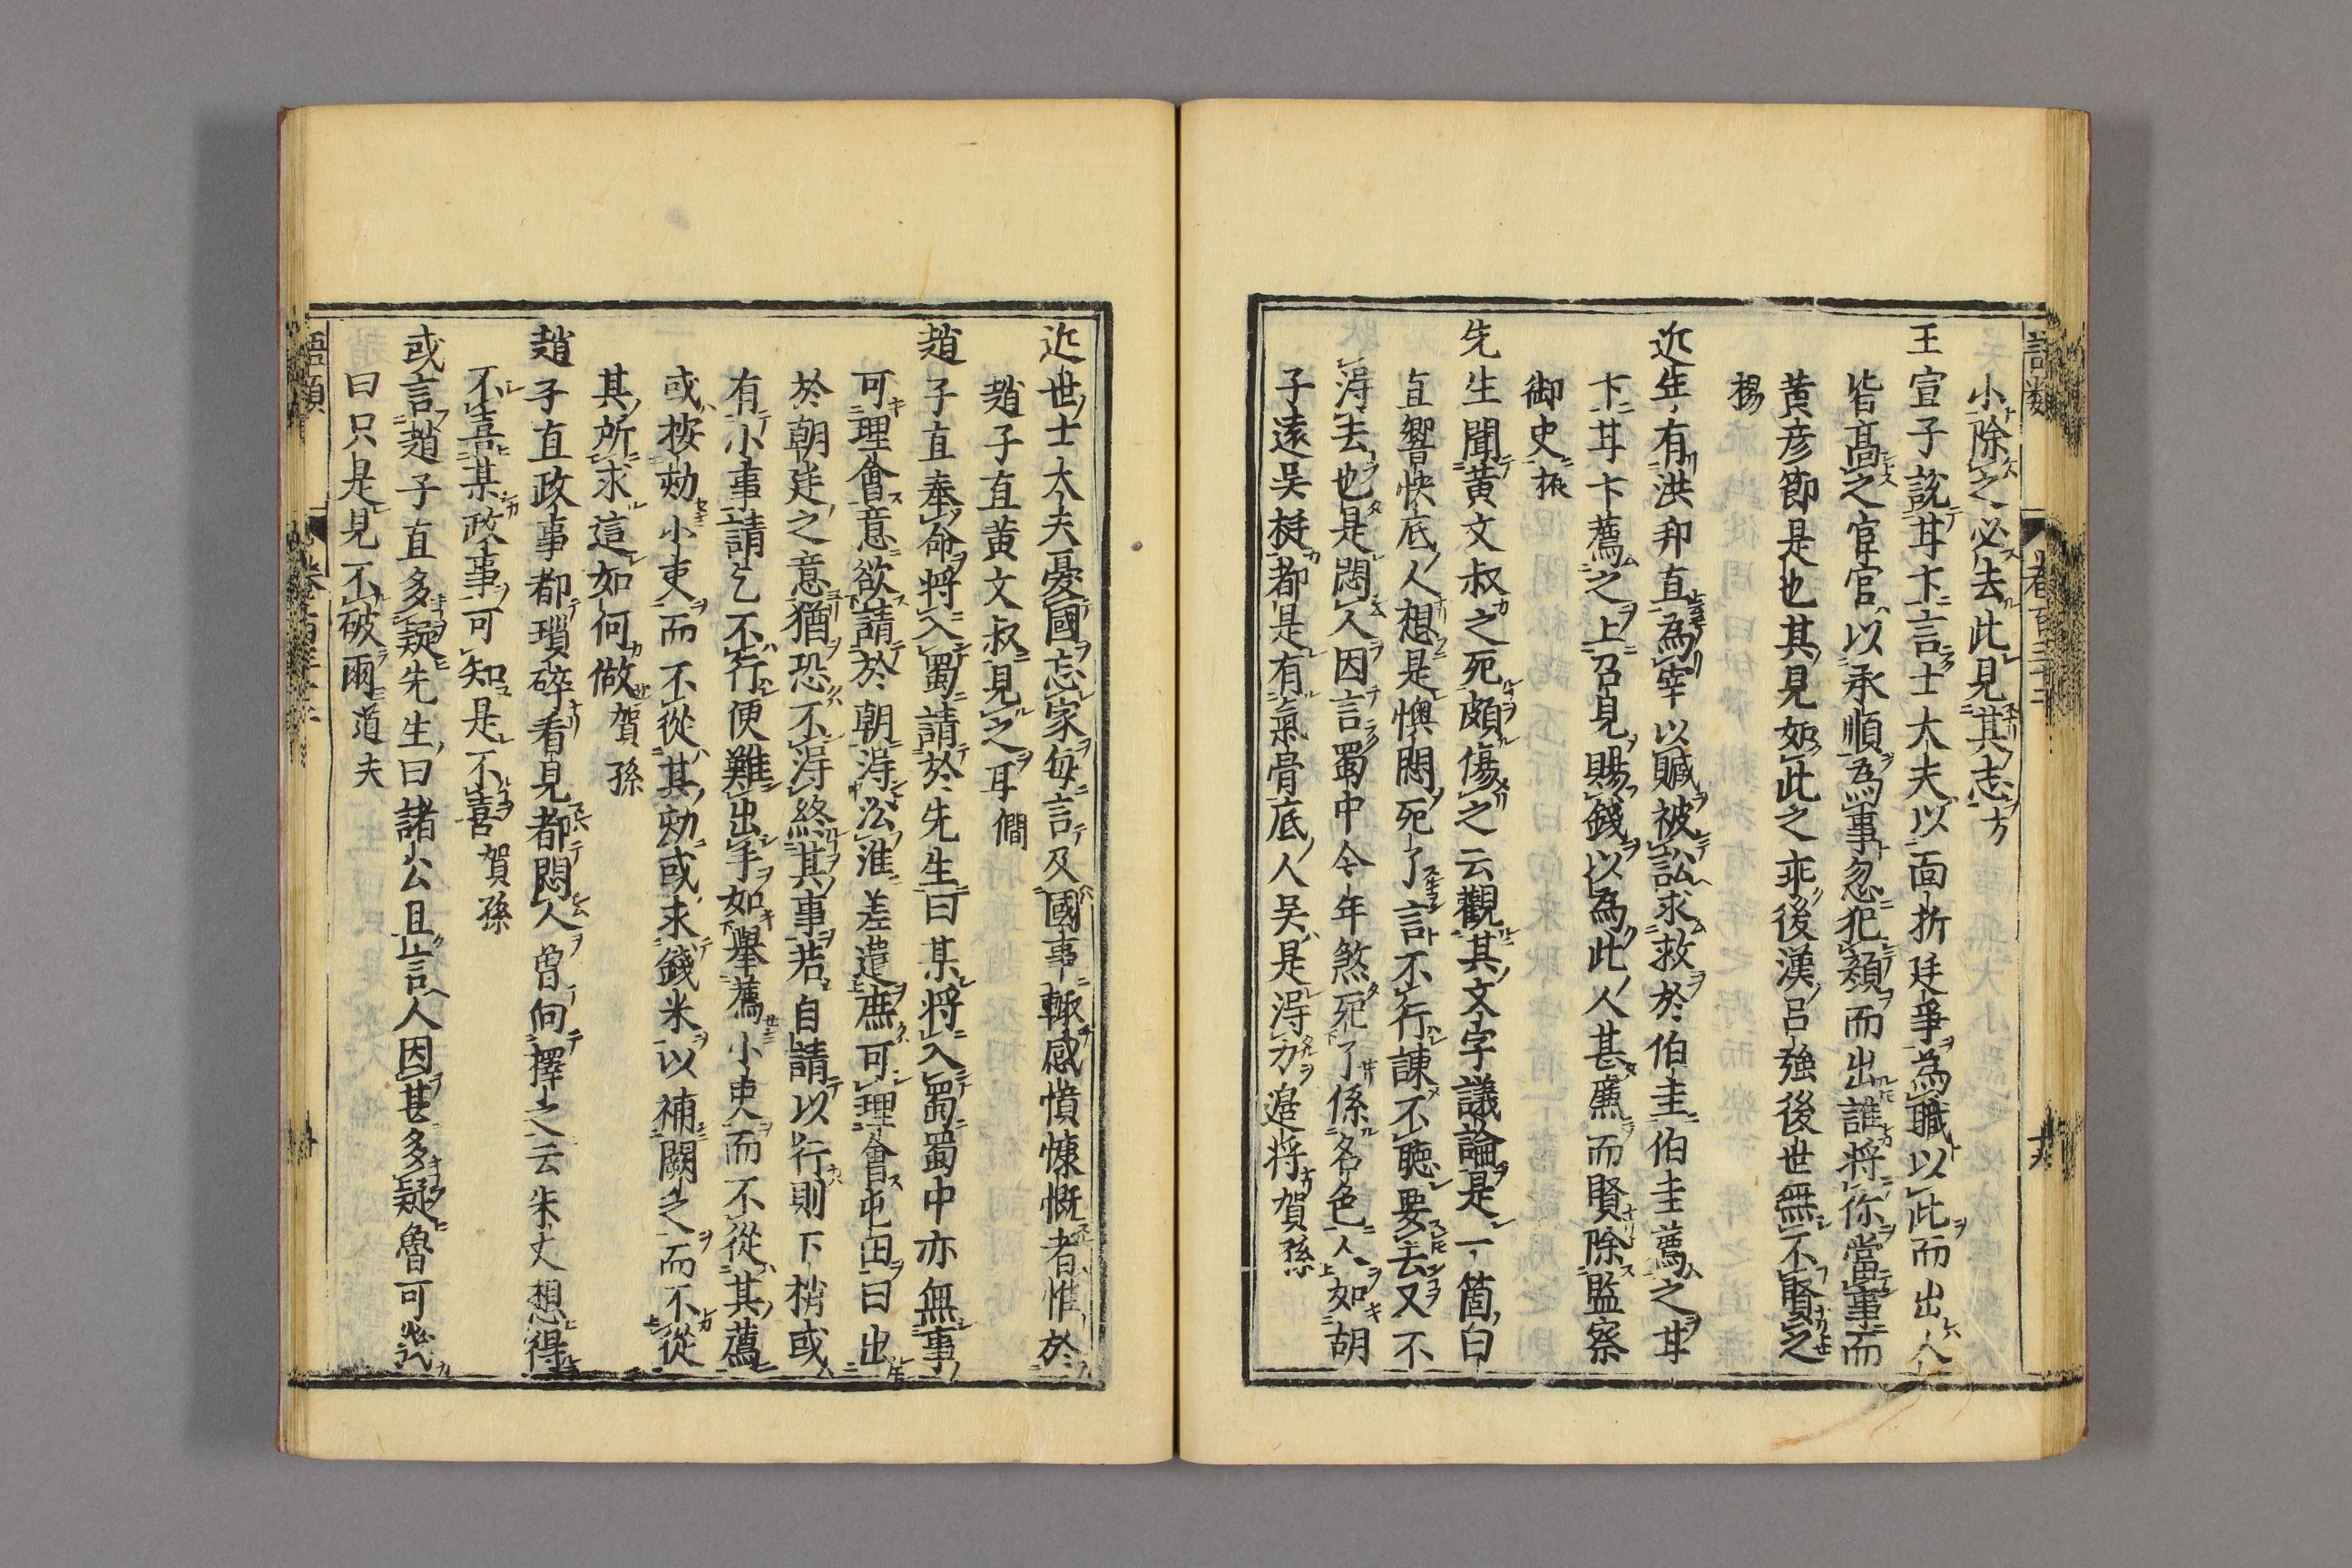 小除之必去此見其志方
王宣子說耳卞言士大夫以面折廷爭為職以此而出人
皆高之宦官以承順為事忽犯顏而出誰將你當事而
黃彥節是也其見如此之乖後漢呂強後世無不賢之
揚
近年有洪邦直為宰以贓被訟求救於伯圭伯圭薦之甘
卞甘卞薦之上召見賜錢以為此人甚廉而賢除監察
御史振
先生聞黃文叔之死頗傷之云觀其文字議論是一箇白
直響快底人想是懊悶死了言不行諫不聽要去又不
得去也是悶人因言蜀中今年煞死了係名色人如胡
子遠吳挺都是有氣骨底人吳是得力邊將賀孫
近世士大夫憂國忘家每言及國事輒感憤慷慨者惟於
趙子直黃文叔見之耳僩
趙子直奉命將入蜀請於先生曰某將入蜀蜀中亦無事
可理會意欲請於朝得沿淮差遣庶可理會屯田曰出
於朝廷之意猶恐不得終其事若自請以行則下梢或
有小事請乞不行便難出手如舉薦小吏而不從其薦
或按劾小吏而不從其劾或求錢米以補闕乏而不從
其所求這如何做賀孫
趙子直政事都瑣碎看見都悶人曾向擇之云朱丈想得
不喜某政事可知是不喜賀孫
或言趙子直多疑先生曰諸公且言人因甚多疑魯可幾
曰只是見不破爾道夫
語類
卷百三十二